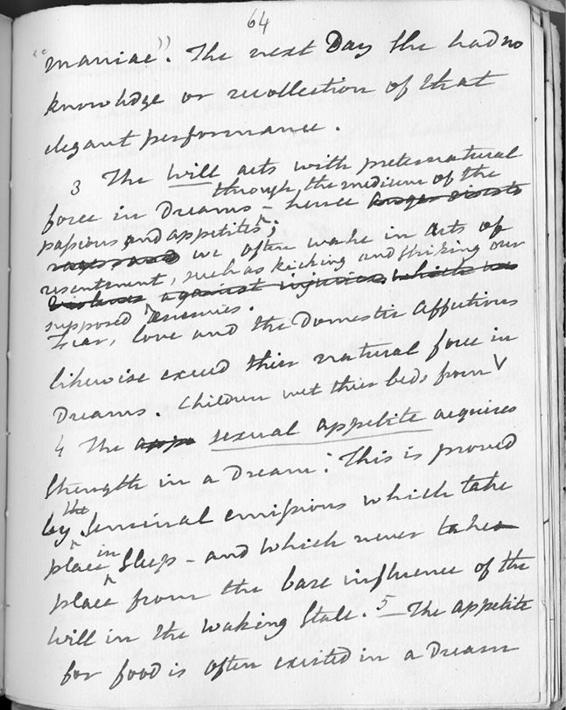 64
"maniac". The next Day she had no
knowledge or recollection of that
elegant performance.
3 The will acts with preternatural
through, the medium of the
force in Dreams – hence
passions and appetites;
we often wake in acts of
resentment, such as kicking and striking our
against injuries, which
supposed enemies.
Fear, love and the Domestic Affections
likewise exceed their natural force in
Dreams. Children wet their beds from V
4 The sexual appetite acquires
strength in a Dream: This is proved
the
by seminal emissions which take
in
place Sleep – and which never takes
place from the bare influence of the
will in the waking State. 5 – The appetite
for food is often excited in a Dream